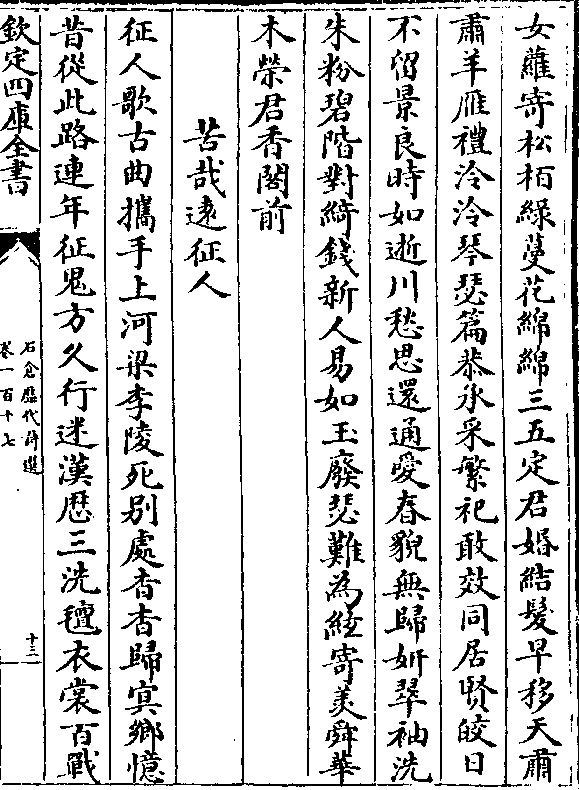 女蘿寄松栢綠蔓花綿綿三五定君婚結髮早移天肅
肅羊雁禮泠泠琴瑟篇恭承采蘩祀敢效同居賢皎日
不留景良時如逝川愁思還通愛春貌無歸妍翠袖洗
朱粉碧階對綺錢新人易如玉廢瑟難為絃寄羙舜華
木榮君香閣前
苦哉遠征人
征人歌古曲攜手上河梁李陵死别處杳杳歸冥鄉憶
昔從此路連年征鬼方久行迷漢厯三洗氊衣裳百戰
欽定四庫全書
石倉歷代詩選
卷一百十七
十三